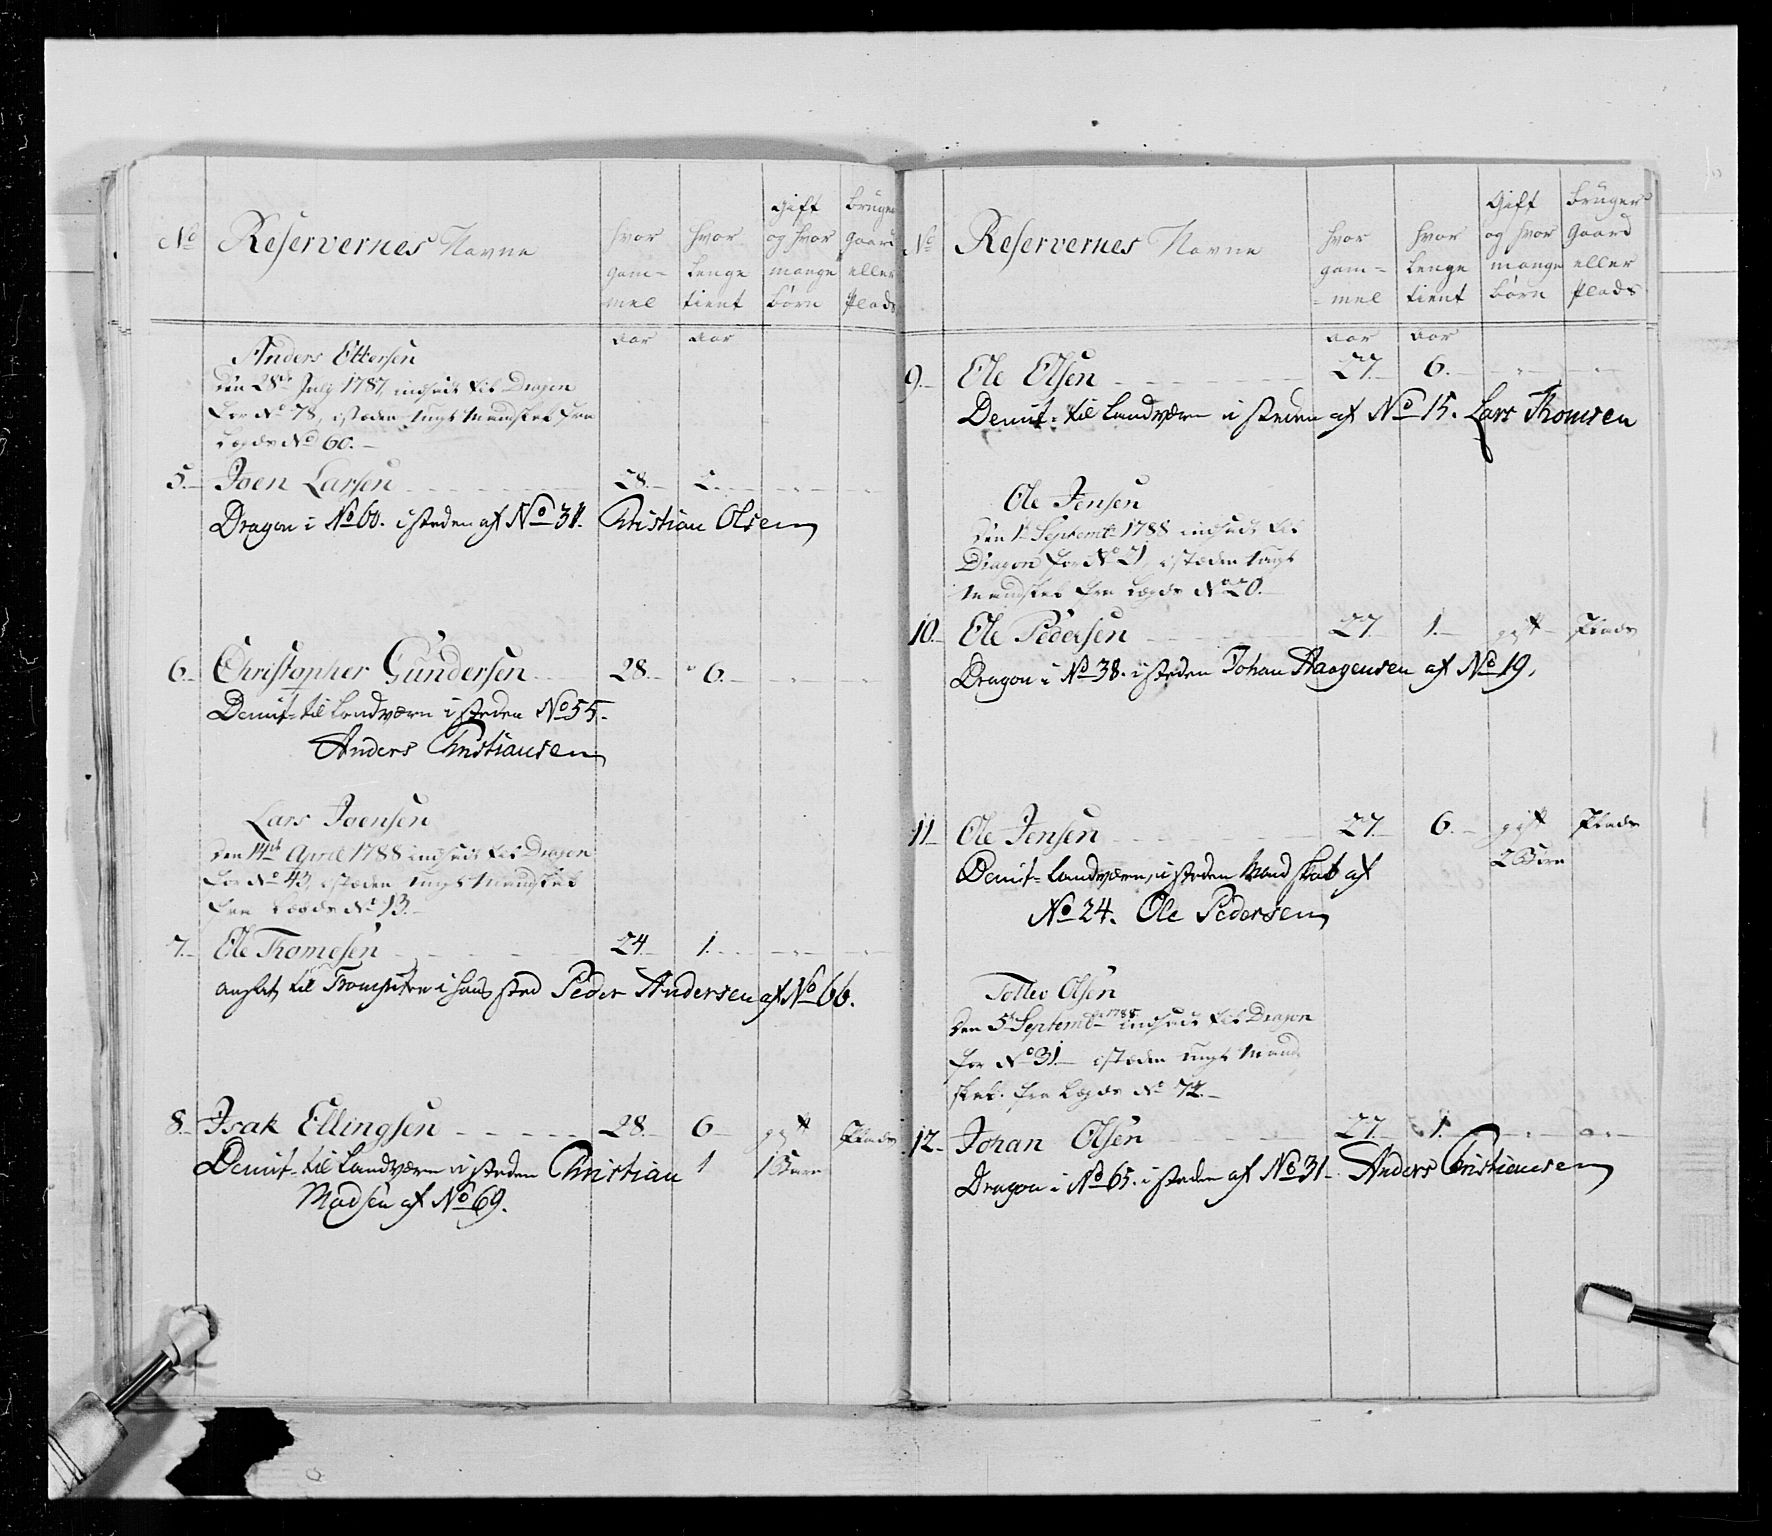 No Reservernes Navne hvor gam= mel hvor lenge tient Gift og hvor mange børn bruger gaard eller Plads
aar aar
Anders Ettersen
Den 28de July 1787, indsadt til Dragon
for No 78, isteden ungt Mandskab fra
Legde No 60. -
5. Joen Larsen 28.
Dragon i No 60. isteden af No 31. Christian Olsen
6. Christopher Gundersen 28. 6.
Demit= til Landværn i steden No 55.
Anders Christiansen
Lars Joensen
Den 14de April 1788 indsadt til Dragon
for No 43, isteden ungt Mandskab
fra Legde No 13.
7. Ole Thomesen 24 1.
ansat til Trompetere i hans sted Peder Andersen af No 66.
8. Isak Ellingsen 28. 6 gift Plads
Demit= til Landværn i steden Christian 1 1 Barn
Madsen af No 69.
No Reservernes Navne hvor gam= =mel hvor lenge tient Gift og hvor mange børn bruger Gaard eller Plads
aar aar
9. Ole Olsen 27. 6.
Demit= til Landværn i steden af No 15. Lars Thomsen
Ole Jensen
Den 1te Septembr 1788 indsadt til
Dragon for No 21, isteden ungt
Mandskab fra Legde No 20.
10. Ole Pedersen 27. 1. gift Plads
Dragon i No 38. isteden Johan Haagensen af No 19.
11 Ole Jensen 27. 6. gift Plads
2 Børn
Demit= Landværn, i steden Mandskab af
No 24. Ole Pedersen
Tollev Olsen
Den 5te Septembr 1788 indsadt til Dragon
for No 31 isteden ungt Mand
skab. fra Legde No 72.
12. Johan Olsen 27. 1.
Dragon i No 65. i steden af No 31. Anders Christiansen